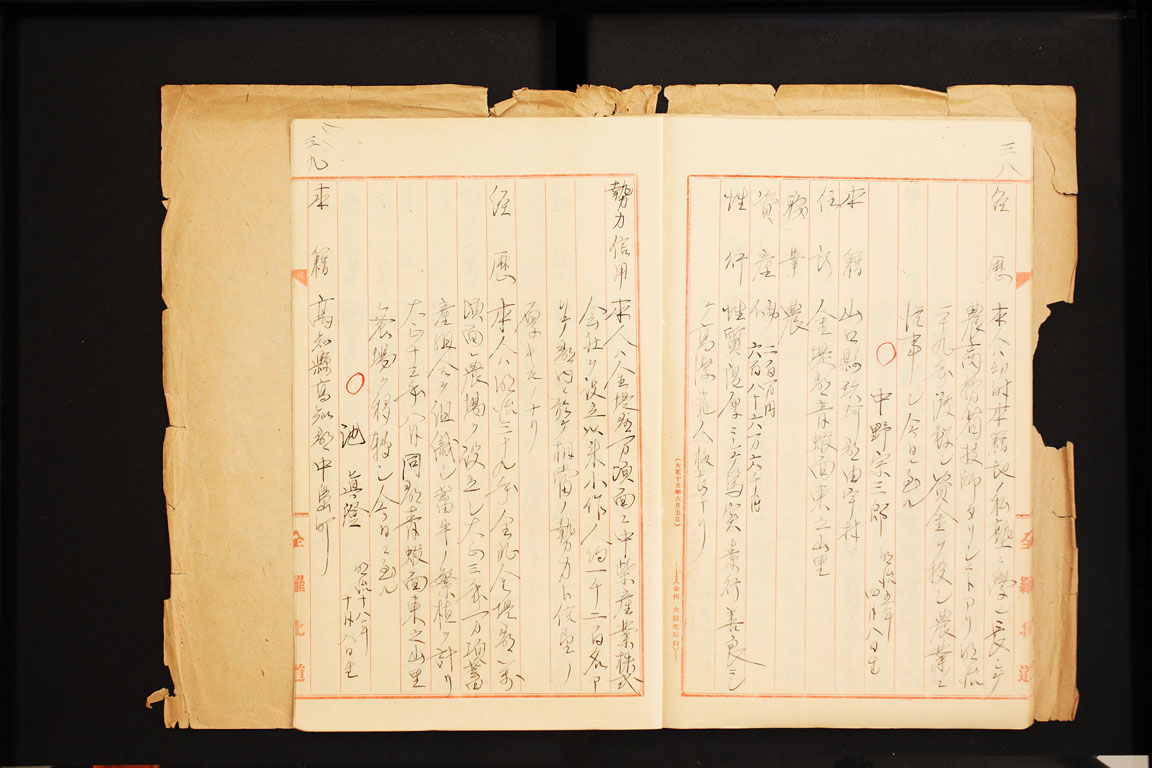 三八
経歴 本人ハ幼時本籍地ノ私塾ニ学ヒ長シテ
農商務省技師タリシコトアリ明治
三十九年渡鮮シ資金ヲ投シ農業ニ
従事シ今日ニ至ル
○ 中野宗三郎 明治十五年四月八日生
本籍 山口縣玖珂郡由宇村
住所 金堤郡青蝦面東之山里
職業 農
資産 動 二百万円
六百八十六万六千円
性行 性質温厚ニシテ篤実素行善良ニシ
(大正十五年六月五日)
全羅北道
勢力信用 本人ハ金堤郡万頃面ニ中柴産業株式
会社ヲ設立以来小作人約一千二百名ア
リテ郡内ニ於テ相當ノ勢力ト信望ノ
厚キモノナリ
経歴 本人ハ明治三十九年全北金堤郡万
頃面ニ農場ヲ設立シ大正三年万頃蓄
産組合ヲ組織シ蓄牛ノ繁植ヲ計リ
大正十三年八月同郡青蝦面東之山里
ニ農場ヲ移転シ今日ニ至ル
○ 池 眞澄 明治十八年十月八日生
本籍 高知縣高知郡中島町
全羅北道
三九